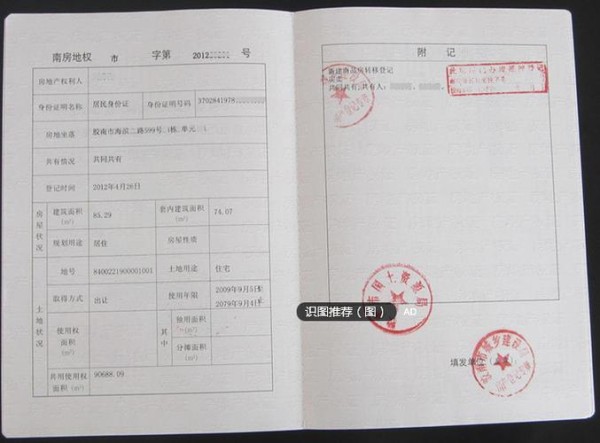 南房地权 市 字第 2012 号
房地产权利人
身份证明名称 居民身份证 身份证明号码 3702841978
房地坐落 胶南市海滨二路599号 1栋 单元
共有情况 共同共有
登记时间 2012年4月26日
房屋状况
建筑面积(m²) 85.29 套内建筑面积(m²) 74.07
规划用途 居住 房屋性质
土地状况
地号 8400221900001001 土地用途 住宅
取得方式 出让 使用年限 2009年9月5日至
2079年9月4日
使用权面积(m²) 其中 独用面积(m²)
分摊面积(m²)
共用使用权面积(m²) 90688.09
附 记
新建商品房转移登记
共同共有:共有人:
国土资源局
识图推荐(图) AD
填发单位
城乡建设局